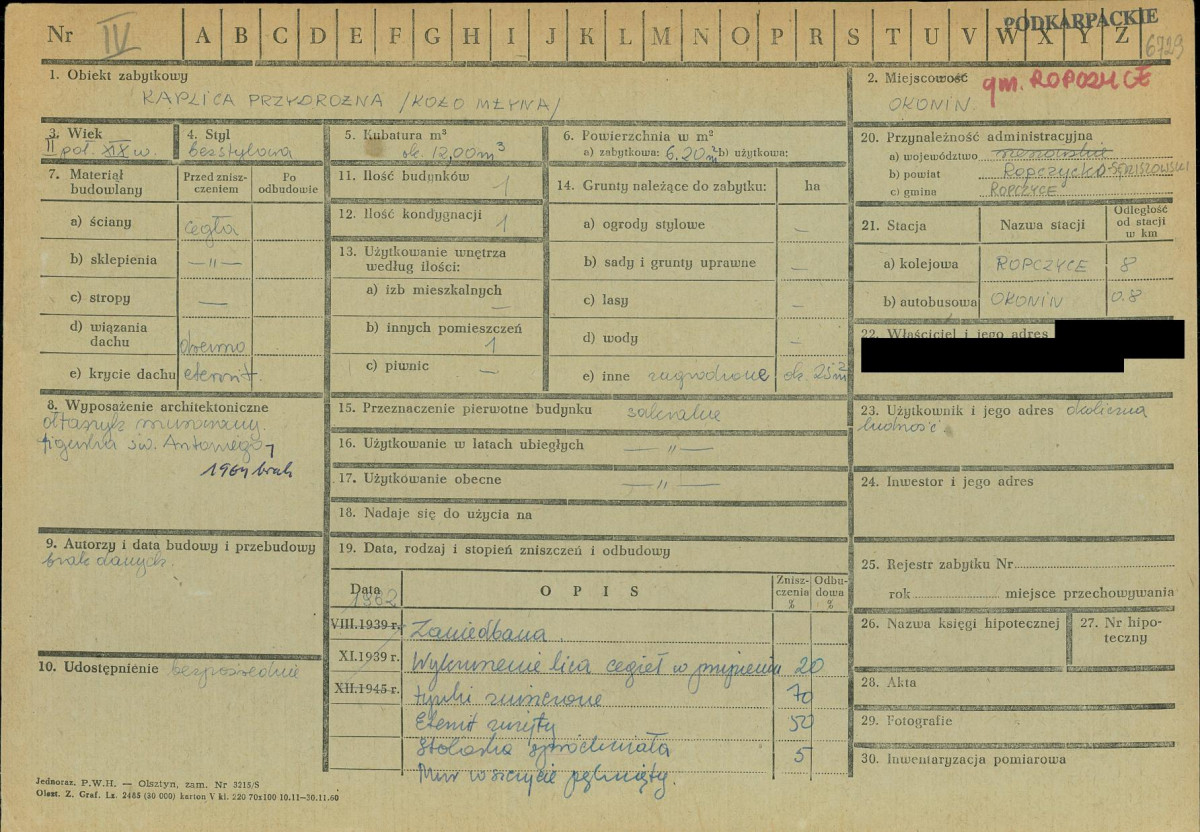 Nr IV A B C D E F G H I J K L M N O P R S T U V W X Y Z
PODKARPACKIE
6729
1. Obiekt zabytkowy
KAPLICA PRZYDROŻNA /KOŁO MŁYNA/
2. Miejscowość gm. ROPCZYCE
OKONIN.
3. Wiek
II poł. XIX w.
4. Styl
bezstylowa
5. Kubatura m³
ok. 12,00 m³
6. Powierzchnia w m²
a) zabytkowa: 6.20 m² b) użytkowa:
7. Materiał budowlany
Przed znisz-
czeniem
Po
odbudowie
a) ściany cegła
b) sklepienia —"—
c) stropy —
d) wiązania
dachu drewno
e) krycie dachu eternit.
8. Wyposażenie architektoniczne
ołtarzyk murowany.
figurka św. Antoniego,
1964 brak
9. Autorzy i data budowy i przebudowy
brak danych.
10. Udostępnienie bezpośrednie
11. Ilość budynków 1
12. Ilość kondygnacji
1
13. Użytkowanie wnętrza
według ilości:
a) izb mieszkalnych
—
b) innych pomieszczeń
1
c) piwnic —
14. Grunty należące do zabytku: ha
a) ogrody stylowe —
b) sady i grunty uprawne —
c) lasy —
d) wody —
e) inne zagrodzone ok. 25 m²
15. Przeznaczenie pierwotne budynku sakralne
16. Użytkowanie w latach ubiegłych —"—
17. Użytkowanie obecne —"—
18. Nadaje się do użycia na
19. Data, rodzaj i stopień zniszczeń i odbudowy
Data OPIS Znisz-
czenia
% Odbu-
dowa
%
1962
VIII.1939 r. Zaniedbana.
XI.1939 r. Wykruszenie lica cegieł w przyziemiu 20
XII.1945 r. tynki zniszczone 70
Eternit zużyty 50
Stolarka spróchniała 5
Mur w szczycie pęknięty.
20. Przynależność administracyjna
a) województwo rzeszowskie
b) powiat Ropczycko-SĘDZISZOWSKI
c) gmina ROPCZYCE
21. Stacja Nazwa stacji Odległość
od stacji
w km
a) kolejowa ROPCZYCE 8
b) autobusowa OKONIN 0.8
22. Właściciel i jego adres
23. Użytkownik i jego adres okoliczna
ludność.
24. Inwestor i jego adres
25. Rejestr zabytku Nr
rok miejsce przechowywania
26. Nazwa księgi hipotecznej
27. Nr hipo-
teczny
28. Akta
29. Fotografie
30. Inwentaryzacja pomiarowa
Jednoraz. P.W.H. — Olsztyn, zam. Nr 3215/S
Olszt. Z. Graf. Lz. 2485 (30 000) karton V kl. 220 70x100 10.11—30.11.60